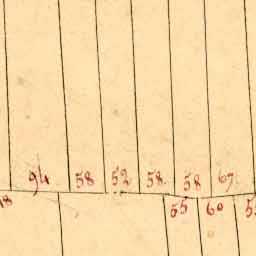 94 58 52 58 58 67
18 55 60 5